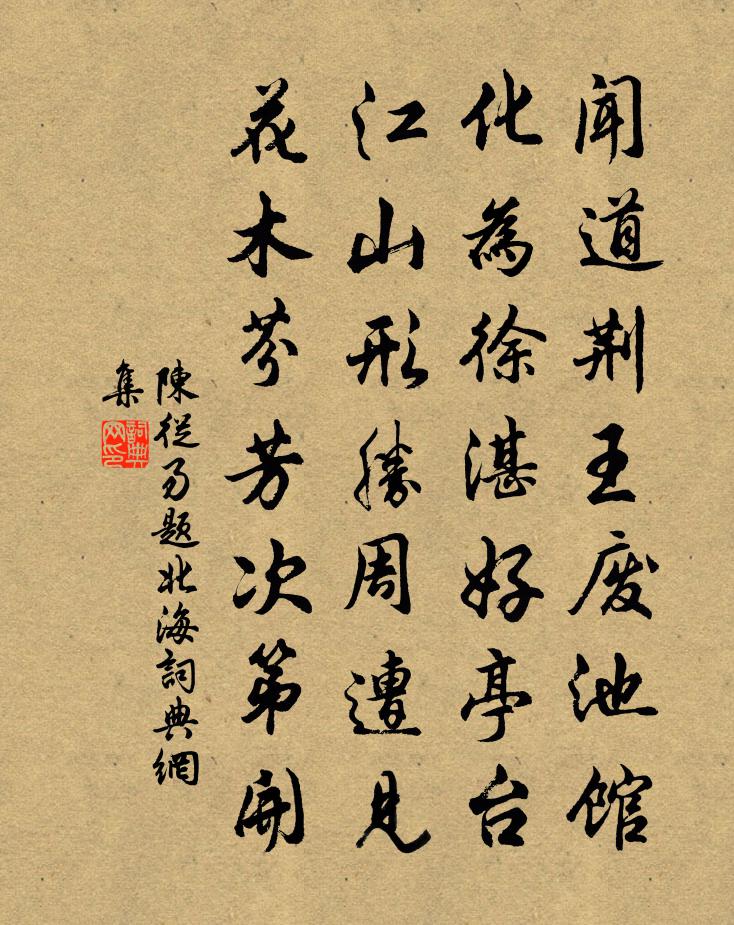 闻道荆王废池馆
化為徐湛好亭台
江山形勝周遭見
花木芬芳次第開
陳從易題北海詞典網
集
詞典
网印